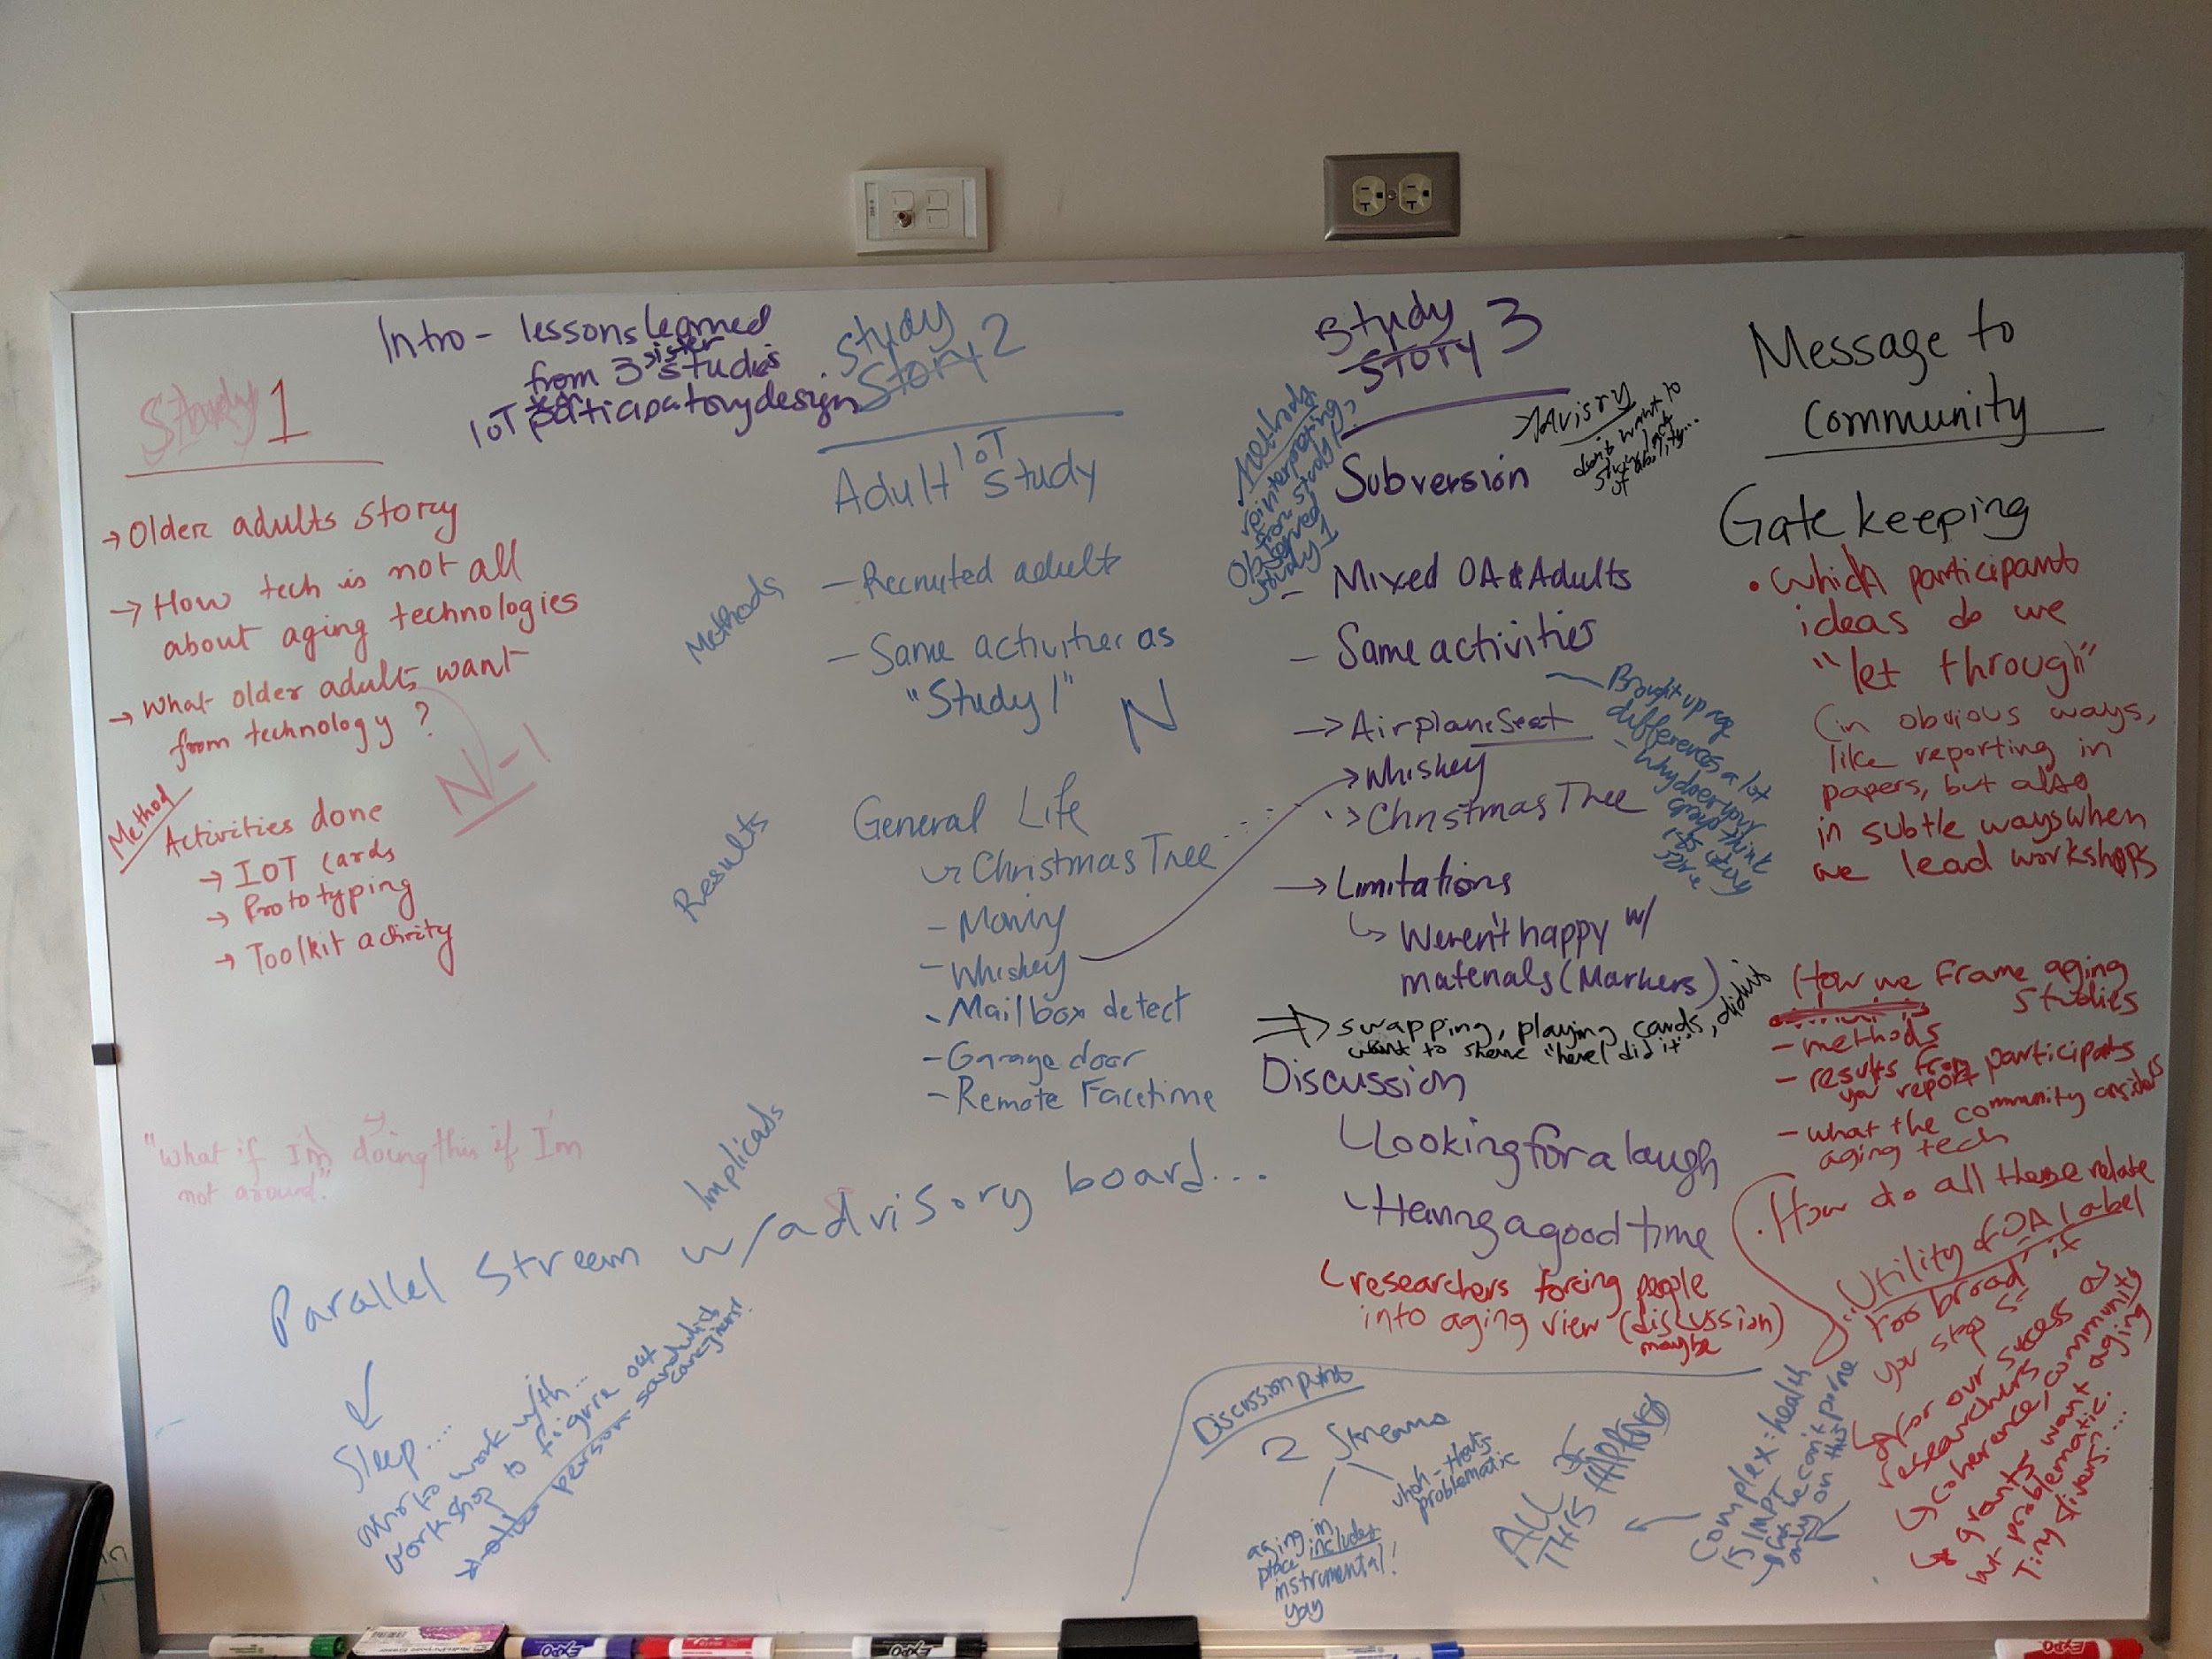 Intro - lessons learned
from 3 sister studies
IoT participatory design
Study 1
→ Older adults story
→ How tech is not all
about aging technologies
→ What older adults want
from technology ?
N-1
Method
Activities done
→ IOT cards
→ Prototyping
→ Toolkit activity
"What if I'm doing this if I'm
not around."
Study
Story 2
Adult IoT Study
Methods
- Recruited adults
- Same activities as
"Study 1"
N
Results
General Life
Christmas Tree
- Whiskey
- Mailbox detect
- Garage door
- Remote Facetime
Parallel Stream w/advisory board...
Sleep....
work with...
workshop to figure out
older person
Study
Story 3
Methods
Study 1
→ Advisory
don't want to
Subversion
- Mixed OA & Adults
- Same activities
→ Airplane Seat
→ Whiskey
→ Christmas Tree
Brought up age
differences a lot
→ Limitations
↳ Weren't happy w/
materials (Markers)
⇒ swapping, playing cards, didn't
want to share "here I did it"
Discussion
↳ Looking for a laugh
↳ Having a good time
↳ researchers forcing people
into aging view (discussion)
maybe
Discussion points
2 Streams
uhoh - that's
problematic
aging in
place includes
instrumental!
yay
ALL OF
THIS HAPPENED
Complex: health
is IMPT
Message to
Community
Gate keeping
• Which participant
ideas do we
"let through"
(in obvious ways,
like reporting in
papers, but also
in subtle ways when
we lead workshops
How we frame aging
studies
- methods
- results from participants
you report
- what the community considers
aging tech
. How do all these relate
"Utility of OA label
too broad if
you stop
for our success as
researchers
↳ coherence, community
↳ grants want aging
but problematic.